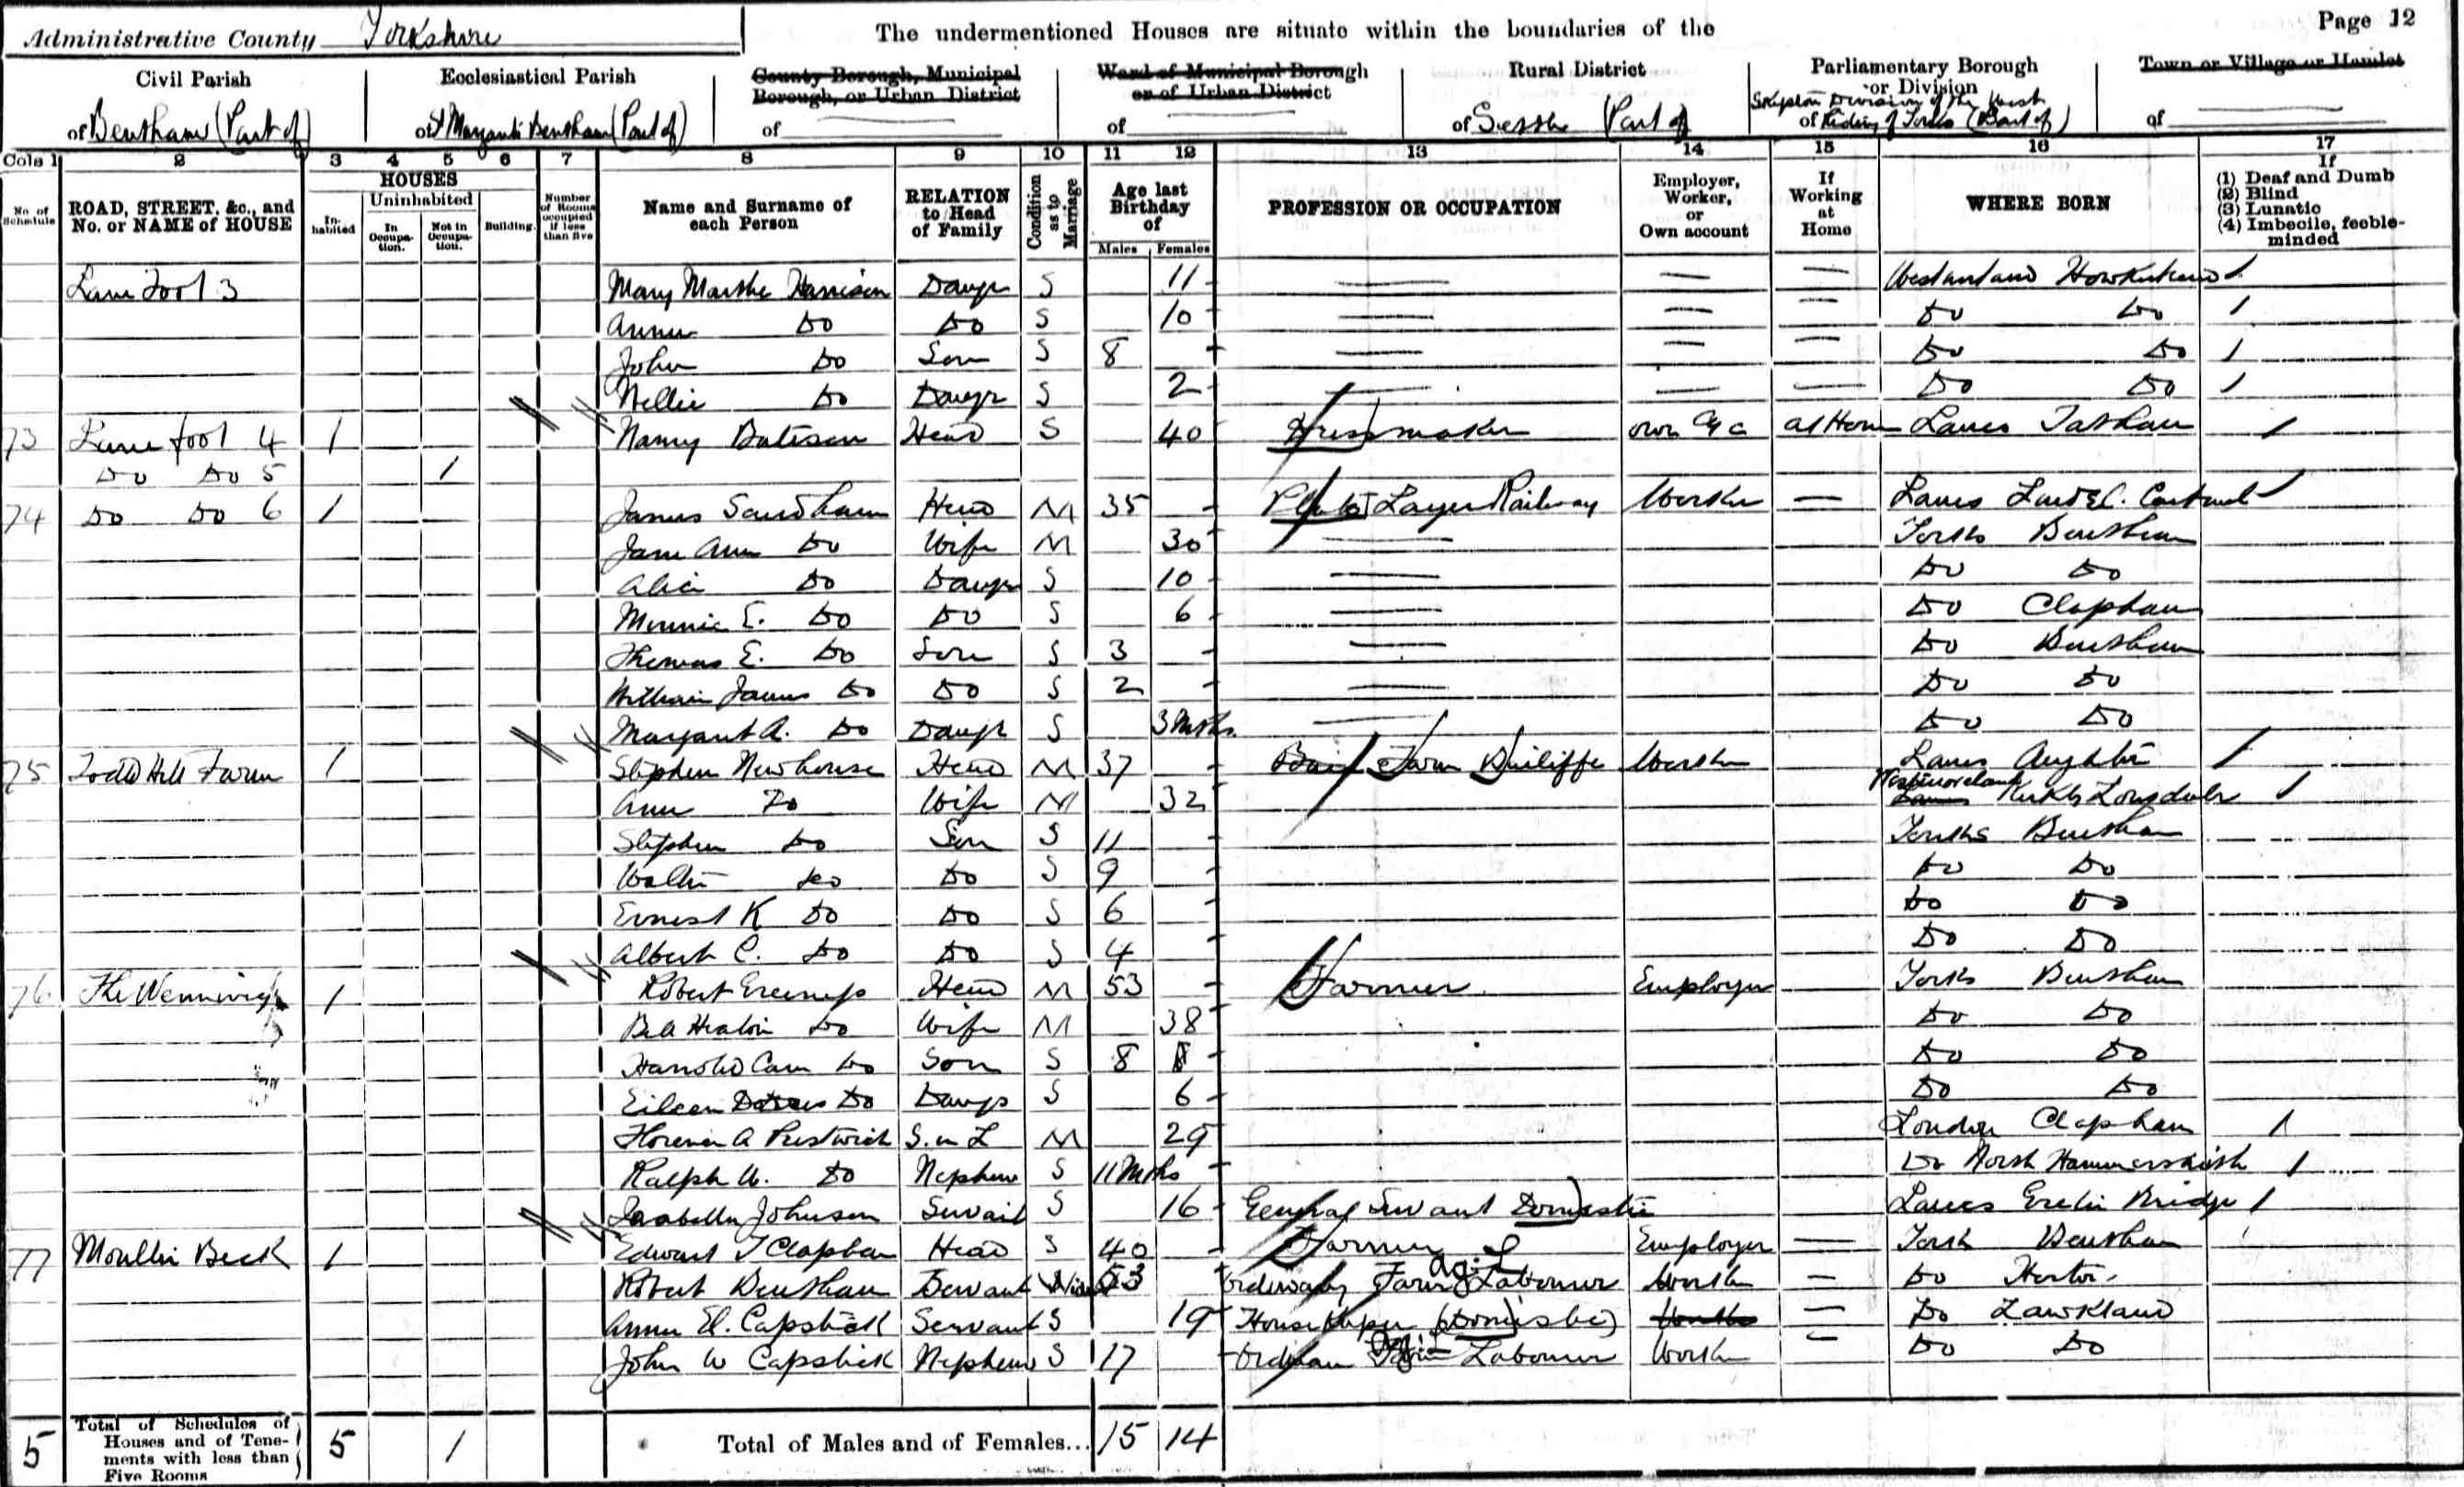 Page 12
Administrative County Yorkshire The undermentioned Houses are situate within the boundaries of the
Civil Parish Ecclesiastical Parish County Borough, Municipal Borough, or Urban District Ward of Municipal Borough or of Urban District Rural District Parliamentary Borough or Division Town or Village or Hamlet
of Bentham (Part of) of St Margarets Bentham (Part of) of of of Settle Part of of Skipton Division of the West Riding of Yorks (Part of) of
Cols 1 2 3 4 5 6 7 8 9 10 11 12 13 14 15 16 17
No. of Schedule ROAD, STREET, &c., and No. or NAME of HOUSE HOUSES Inhabited Uninhabited In Occupation. Not in Occupation. Building. Number of Rooms occupied if less than five Name and Surname of each Person RELATION to Head of Family Condition as to Marriage Age last Birthday of Males Females PROFESSION OR OCCUPATION Employer, Worker, or Own account If Working at Home WHERE BORN If (1) Deaf and Dumb (2) Blind (3) Lunatic (4) Imbecile, feeble-minded
Lane Foot 3 Mary Martha Harrison Daugr S 11 — — — Westmorland
Annie Do Do S 10 — — — Do Do
John Do Son S 8 — — — Do Do
Nellie Do Daugr S 2 — — — Do Do
73 Lane foot 4 1 Nancy Bateson Head S 40 Dressmaker own a/c at Home Lancs Tatham
Do Do 5 1
74 Do Do 6 1 James Sandham Head M 35 Plate Layer Railway Worker — Lancs
Jane Ann Do Wife M 30 — Yorks Bentham
Alice Do Daugr S 10 — Do Do
Minnie E. Do Do S 6 — Do Clapham
Thomas E. Do Son S 3 — Do Bentham
William James Do Do S 2 — Do Do
Margaret A. Do Daugr S 3 Mths. — Do Do
75 Hill Farm 1 Stephen Newhouse Head M 37 Farm Bailiffe Worker Lancs Aughton
Ann Do Wife M 32 Westmoreland Lancs Kirkby Lonsdale
Stephen Do Son S 11 Yorks Bentham
Walter Do Do S 9 Do Do
Ernest K Do Do S 6 Do Do
Albert C. Do Do S 4 Do Do
76 The Wenning 1 Robert Greenep Head M 53 Farmer Employer Yorks Bentham
Do Wife M 38 Do Do
Harold Cam Do Son S 8 Do Do
Eileen Do Daugr S 6 Do Do
Florence A Prestwich S. in L M 29 London Clapham
Ralph W. Do Nephew S 11 Mths Do North Hammersmith
Isabella Johnson Servant S 16 General Servant Domestic Lancs Bridge
77 Beck 1 Edward T Clapham Head S 40 Farmer Employer — Yorks Bentham
Robert Bentham Servant Wid 53 Ordinary Farm Agi Labourer Worker — Do Horton
Annie El. Capstick Servant S 19 Housekeeper (Domestic) Worker — Do Lawkland
John W Capstick Nephew S 17 Farm Labourer Worker — Do Do
5 Total of Schedules of Houses and of Tenements with less than Five Rooms 5 1 Total of Males and of Females... 15 14